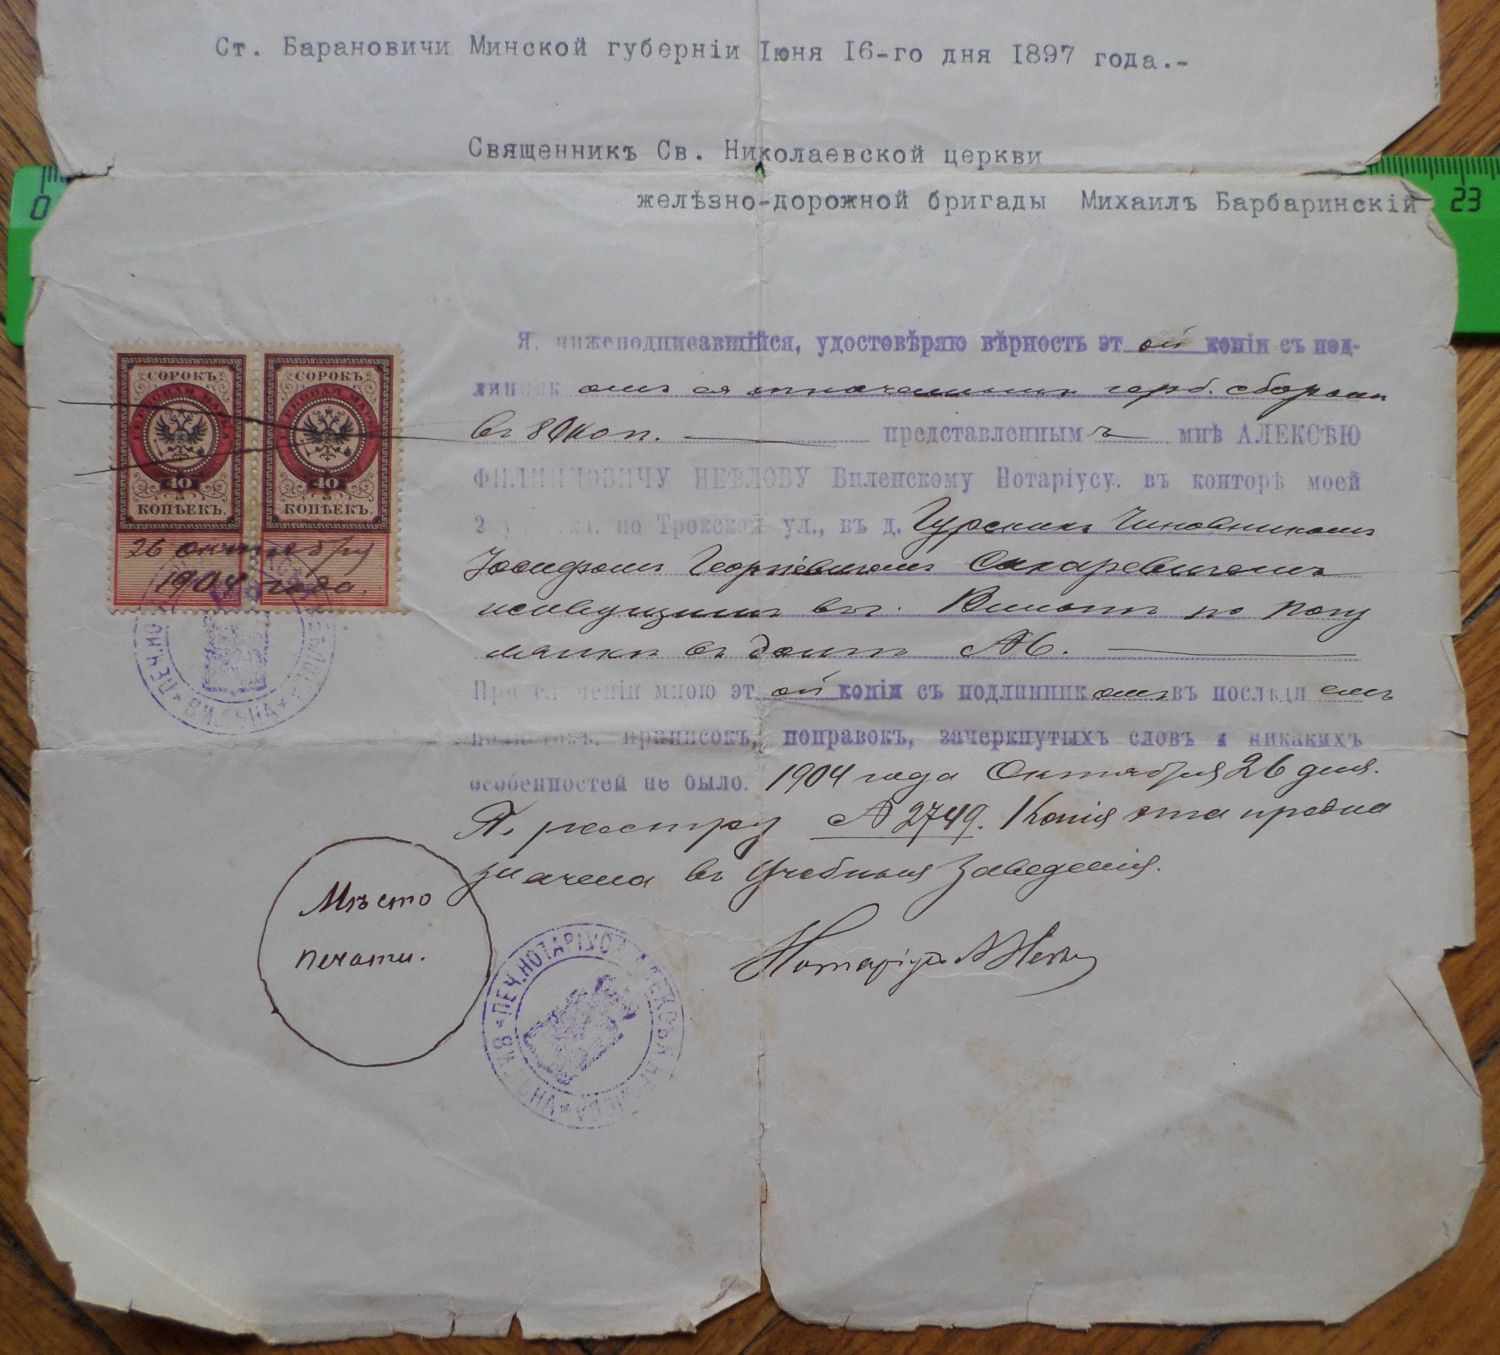 Ст. Барановичи Минской губерніи Іюня 16-го дня 1897 года.-
Священникъ Св. Николаевской церкви
желѣзно-дорожной бригады Михаилъ Барбаринскій
0
23
СОРОКЪ СОРОКЪ
40 40
КОПѢЕКЪ. КОПѢЕКЪ.
26 октября
1904 года.
ВИЛЬНА
Я, нижеподписавшійся, удостовѣряю вѣрность этой копіи съ под-
линникомъ герб. сборомъ
въ 80 коп. представленнымъ мнѣ АЛЕКСѢЮ
ФИЛИППОВИЧУ НЕѢЛОВУ Виленскому Нотаріусу, въ конторѣ моей
2 по Трокской ул., въ д. Гурскихъ Чиновникомъ
Іосифомъ Георгіевичемъ Сахаревичемъ
въ г. Вильнѣ по
въ домѣ №.
При сличеніи мною этой копіи съ подлинникомъ въ последнемъ
подчистокъ, приписокъ, поправокъ, зачеркнутыхъ словъ и никакихъ
особенностей не было. 1904 года Октября 26 дня.
По реестру № 2749. Копія эта предна
значена въ Учебныя Заведенія.
Мѣсто
печати.
ПЕЧ. НОТАРІУСА АЛЕКСѢЯ
Нотаріусъ А Неѣловъ